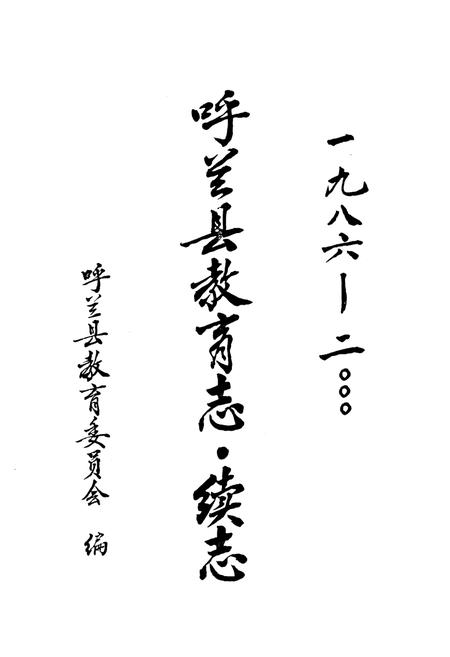 一九八六—二〇〇〇
呼兰县教育志·续志
呼兰县教育委员会 编